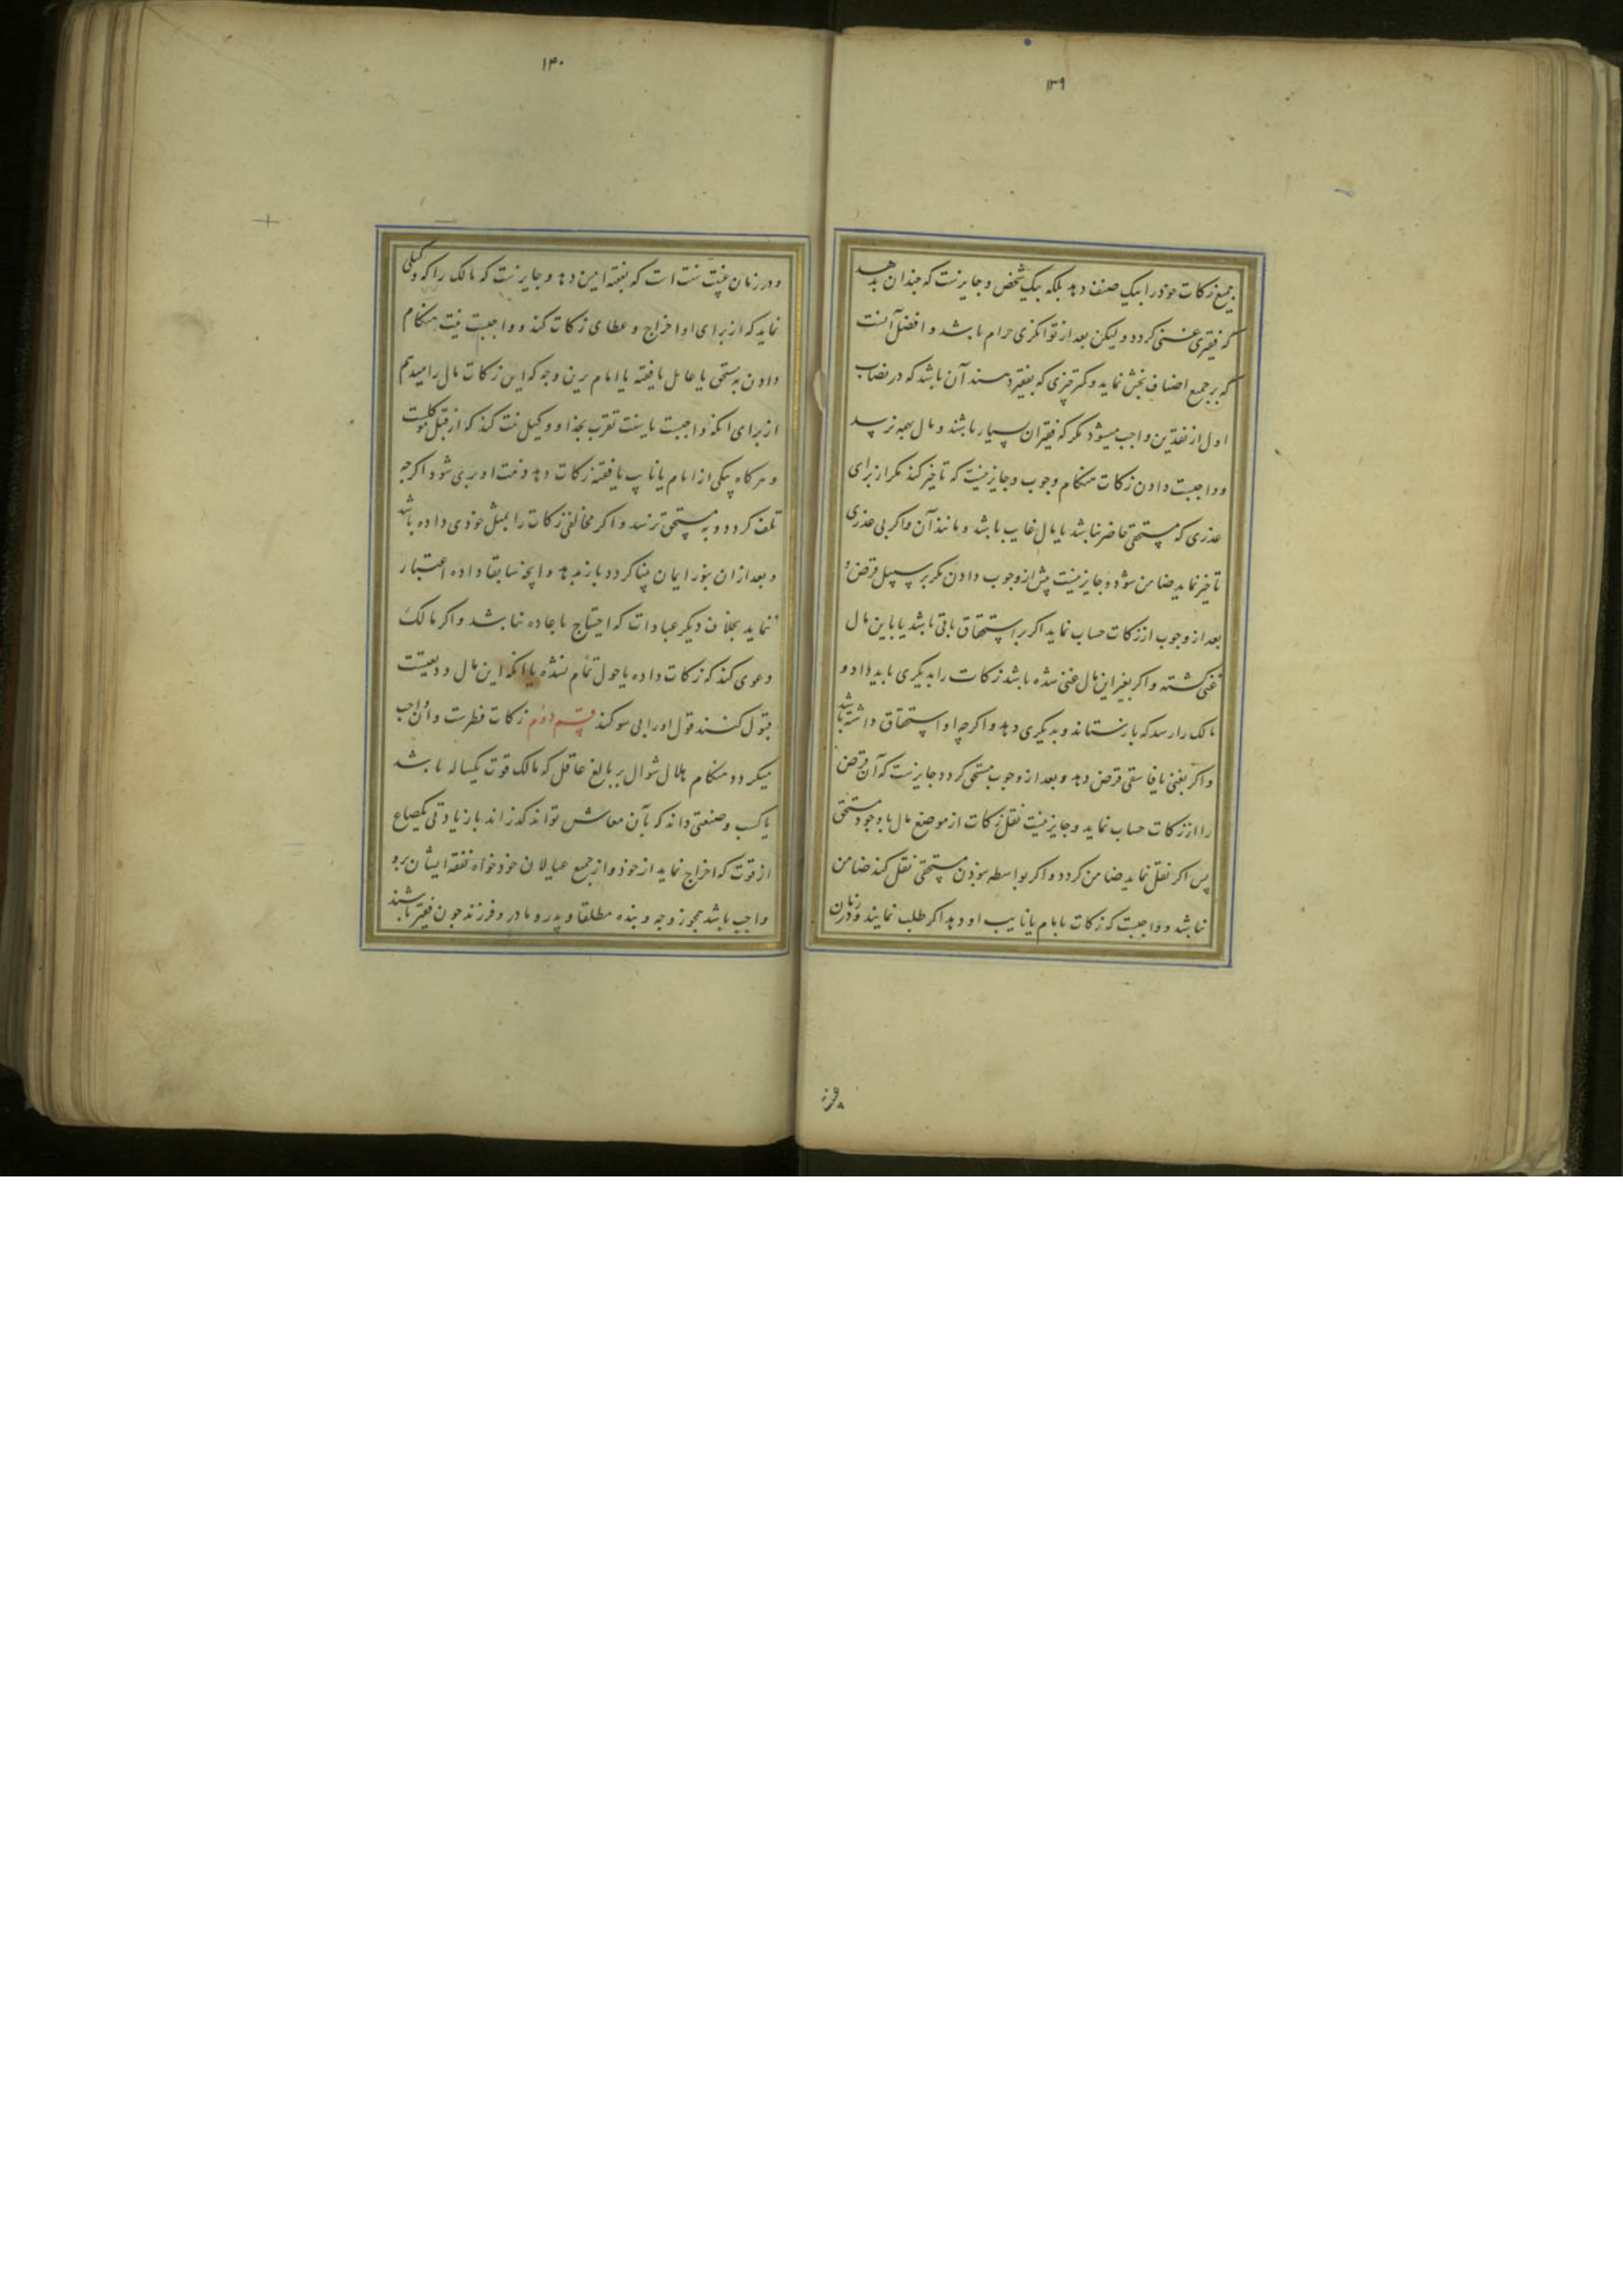 ۱۳۹
جمیع زکات خود را بیک صنف دهد بلکه بیک شخص و جایزست که چندان بدهد
که فقیری غنی کردد و لیکن بعد از توانکری حرام باشد و افضل آنست
که بر جمیع اصناف بخش نماید و کمتر چیزی که بفقیر دهند آن باشد که در نصاب
اول از نقدین واجب میشود مکر که فقیران بسیار باشند و مال بهمه نرسد
و واجبست دادن زکات هنکام وجوب و جایز نیست که تاخیر کند مکر از برای
عذری که مستحقی حاضر نباشد یا مال غایب باشد و مانند آن و اکر بی عذری
تاخیر نماید ضامن شود و جایز نیست پیش از وجوب دادن مکر بر سبیل قرض و
بعد از وجوب از زکات حساب نماید اکر بر استحقاق باقی باشد یا باین مال
غنی کشته و اکر بغیر این مال غنی شده باشد زکات را بدیکری باید داد و
مالک را رسد که باز ستاند و بدیکری دهد و اکرچه او استحقاق داشته باشد
و اکر بغنی یا فاسقی قرض دهد و بعد از وجوب مستحق کردد جایزست که آن قرض
را از زکات حساب نماید و جایز نیست نقل زکات از موضع مال با وجود مستحق
پس اکر نقل نماید ضامن کردد و اکر بواسطه نبودن مستحقی نقل کند ضامن
نباشد و واجبست که زکات بامام یا نایب او دهد اکر طلب نمایند و در زمان
۱۴۰
و در زمان غیبت سنت است که بفقیه امین دهد و جایزست که مالک را که وکیلی
نماید که از برای او اخراج و عطای زکات کند و واجبست نیت هنکام
دادن بمستحق یا عامل یا فقیه یا امام برین وجه که این زکات مال را میدهم
از برای آنکه واجبست باینست تقرب بخدا و وکیل نیت کند که از قبل موکلست
و هر کاه یکی از امام یا نایب یا فقیه زکات دهد ذمت او بری شود اکرچه
تلف کردد و به مستحق نرسد و اکر مخالفی زکات را بمثل خودی داده باشد
و بعد از ان بنور ایمان بینا کردد باز بدهد و آنچه سابقا داده اعتبار
ننماید بخلاف دیکر عبادات که احتیاج باعاده نباشد و اکر مالک
دعوی کند که زکات داده یا حول تمام نشده یا آنکه این مال ودیعتست
قبول کنند قول او را بی سوکند قسم دوم زکات فطرست و آن واجب
میکردد هنکام هلال شوال بر بالغ عاقل که مالک قوت یکساله باشد
یا کسب و صنعتی داند که بآن معاش تواند کذراند با زیادتی یکصاع
از قوت که اخراج نماید از خود و از جمیع عیالان خود خواه نفقه ایشان برو
واجب باشد همچو زوجه و بنده مطلقا و پدر و مادر و فرزند چون فقیر باشند